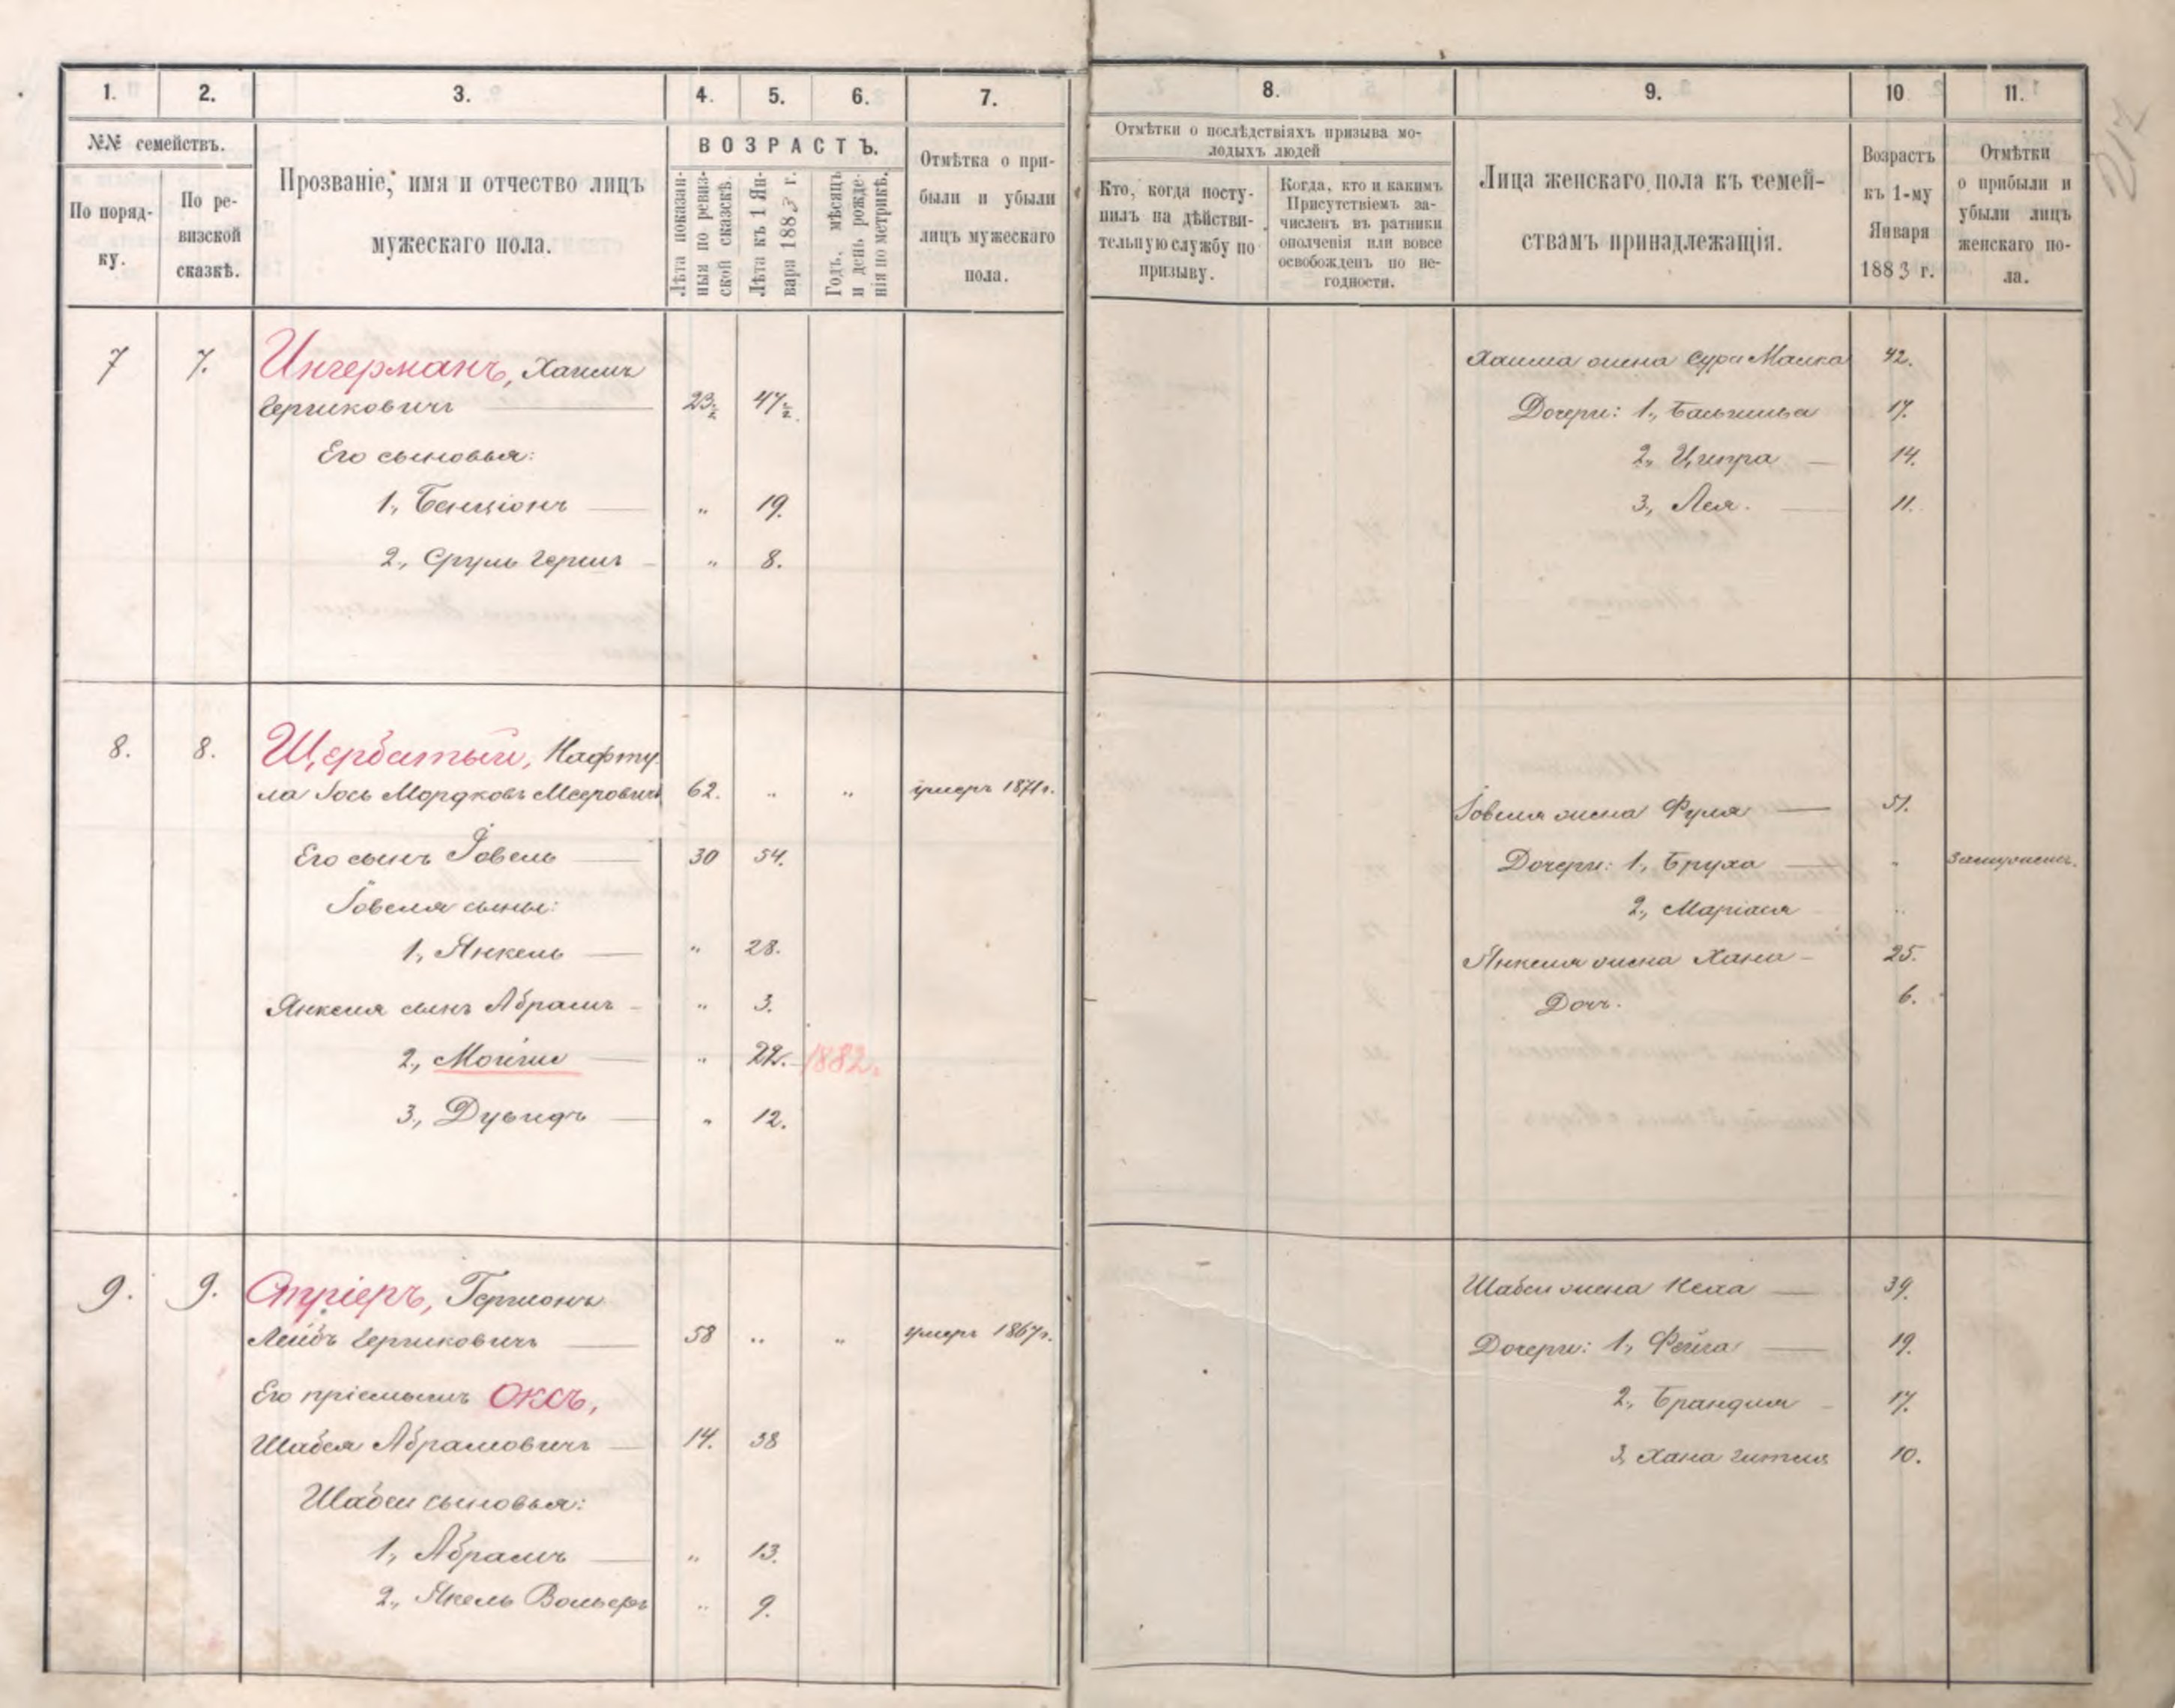 1. 2. 3. 4. 5. 6. 7.
№№ семействъ.
По поряд-
ку.
По ре-
визской
сказкѣ.
Прозваніе, имя и отчество лицъ
мужескаго пола.
ВОЗРАСТЪ.
Лѣта показан-
ныя по ревиз-
ской сказкѣ.
Лѣта къ 1 Ян-
варя 1883 г.
Годъ, мѣсяцъ
и день рожде-
нія по метрикѣ.
Отмѣтка о при-
были и убыли
лицъ мужескаго
пола.
7 7. Ингерманъ, Хаимъ
Гершковичъ 23½ 47½.
Его сыновья:
1., Бенціонъ „ 19.
2., Сруль Гершъ „ 8.
8. 8. Щербатый, Нафту-
ла Іось Мордковъ Мееровичъ 62. „ „ умеръ 1871 г.
Его сынъ Іовель 30 54.
Іовеля сыны:
1., Янкель „ 28.
Янкеля сынъ Абрамъ „ 3.
2., Мойше „ 22. 1882.
3., Дувидъ „ 12.
9. 9. Стріеръ,
Лейбъ Гершковичъ 58 „ „ умеръ 1867 г.
Его пріемышъ Оксъ,
Шабся Абрамовичъ 14. 38
Шабси сыновья:
1., Абрамъ „ 13.
2., „ 9.
8. 9. 10 11.
Отмѣтки о послѣдствіяхъ призыва мо-
лодыхъ людей
Кто, когда посту-
пилъ на дѣйстви-
тельную службу по
призыву.
Когда, кто и какимъ
Присутствіемъ за-
численъ въ ратники
ополченія или вовсе
освобожденъ по не-
годности.
Лица женскаго пола къ семей-
ствамъ принадлежащія.
Возрастъ
къ 1-му
Января
1883 г.
Отмѣтки
о прибыли и
убыли лицъ
женскаго по-
ла.
Хаима жена Сура Малка 42.
Дочери: 1., 17.
2., Ципра 14.
3., Лея. 11.
Іовеля жена Фуля 51.
Дочери: 1., Бруха „ Замужемъ.
2., Маріася „
Янкеля жена Хана 25.
Дочь. 6.
Шабси жена Неха 39.
Дочери: 1., Фейга 19.
2., Брандля 17.
3., Хана Гитля 10.